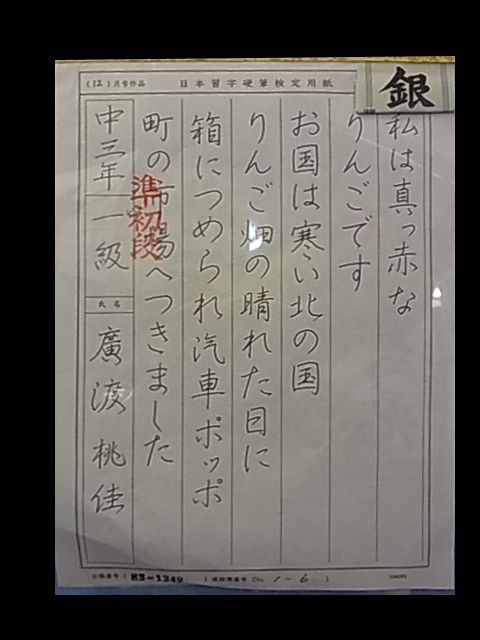 (12)月号作品
日本習字硬筆検定用紙
銀
私は真っ赤な
りんごです
お国は寒い北の国
りんご畑の晴れた日に
箱につめられ汽車ポッポ
町の市場へつきました
準初段
中三年
一級
氏名
廣渡桃佳
83-1249
1-6